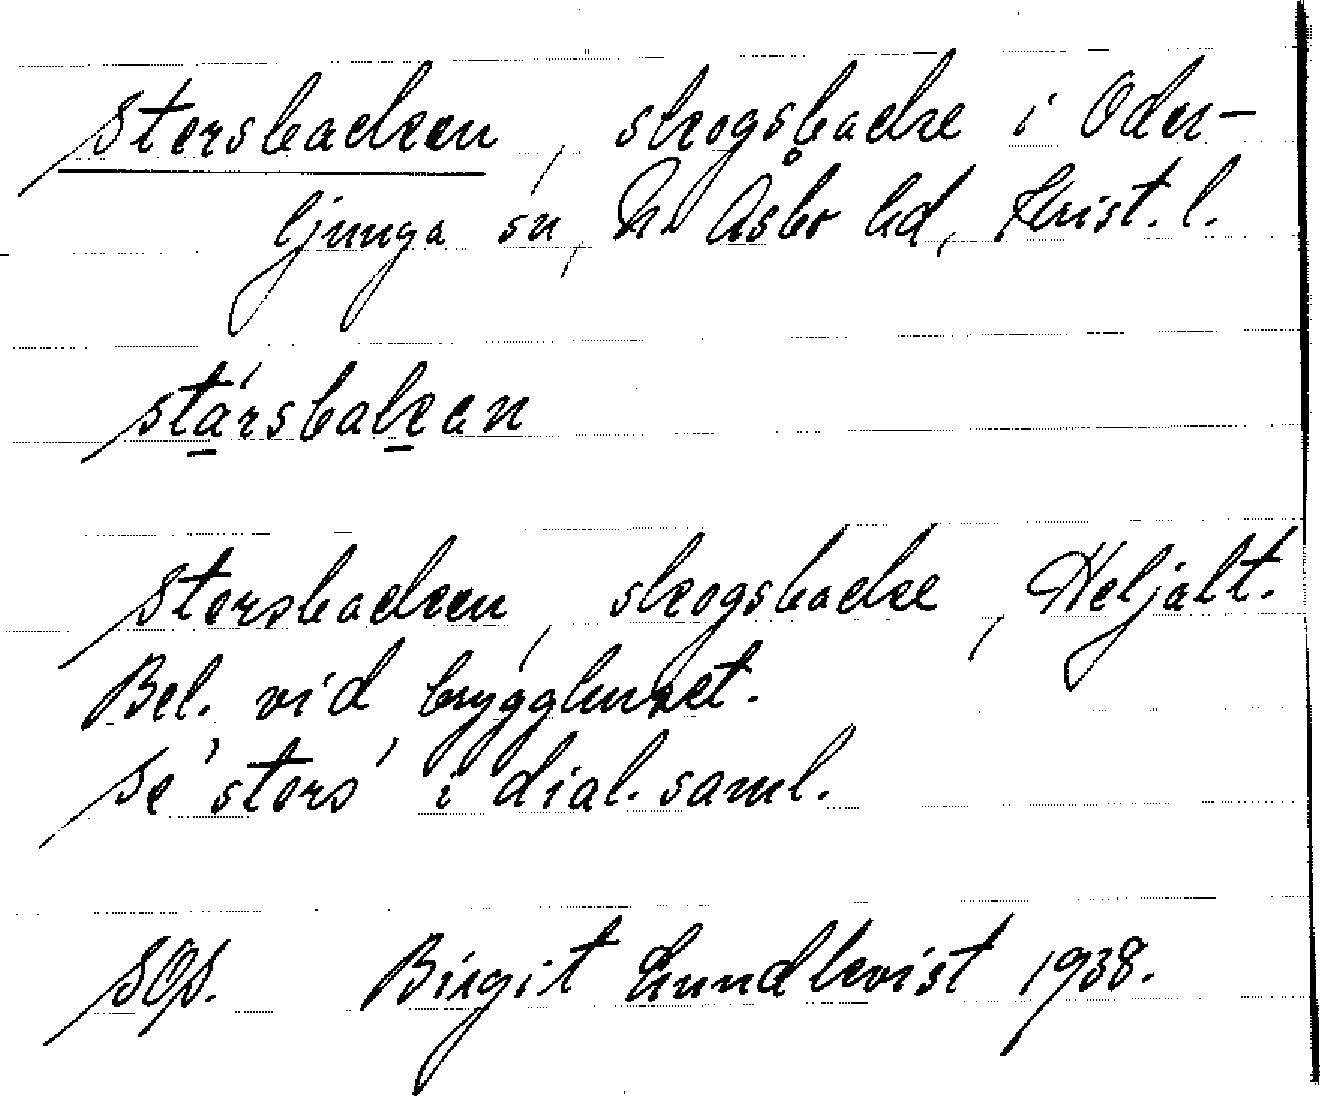 Storsbacken, skogsbacke i Oder-
ljunga sn, N. Åsbo hd, Krist. l.
stársbakan
Storsbacken, skogsbacke, Heljalt.
Bel. vid brygghuset.
Se 'stors' i dial. saml.
SOs. Birgit Lundkvist 1938.